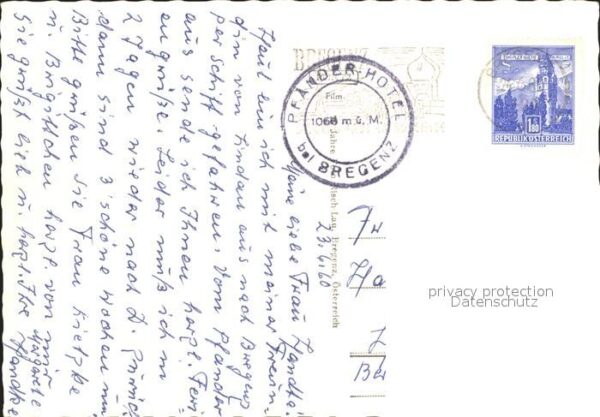 Meine liebe Frau Handke!
Heut bin ich mit meiner Freun-
din von Lindau aus nach Bregenz
per Schiff gefahren. Vom Pfänder
aus sende ich Ihnen herzl. Feri-
engrüße. Leider muß ich in
2 Tagen wieder nach D. zurück
dann sind 3 schöne Wochen um
Bitte grüßen Sie Frau
u. herzl. von mir
Sie grüßt lieb u. herzl. Ihre Margarete
Handke
23.6.60
Fr
Ha
Be
BREGENZ
PFÄNDER-HOTEL
1060 m ü. M.
bei BREGENZ
Film
Bregenz, Österreich
1.80
REPUBLIK ÖSTERREICH
privacy protection
Datenschutz